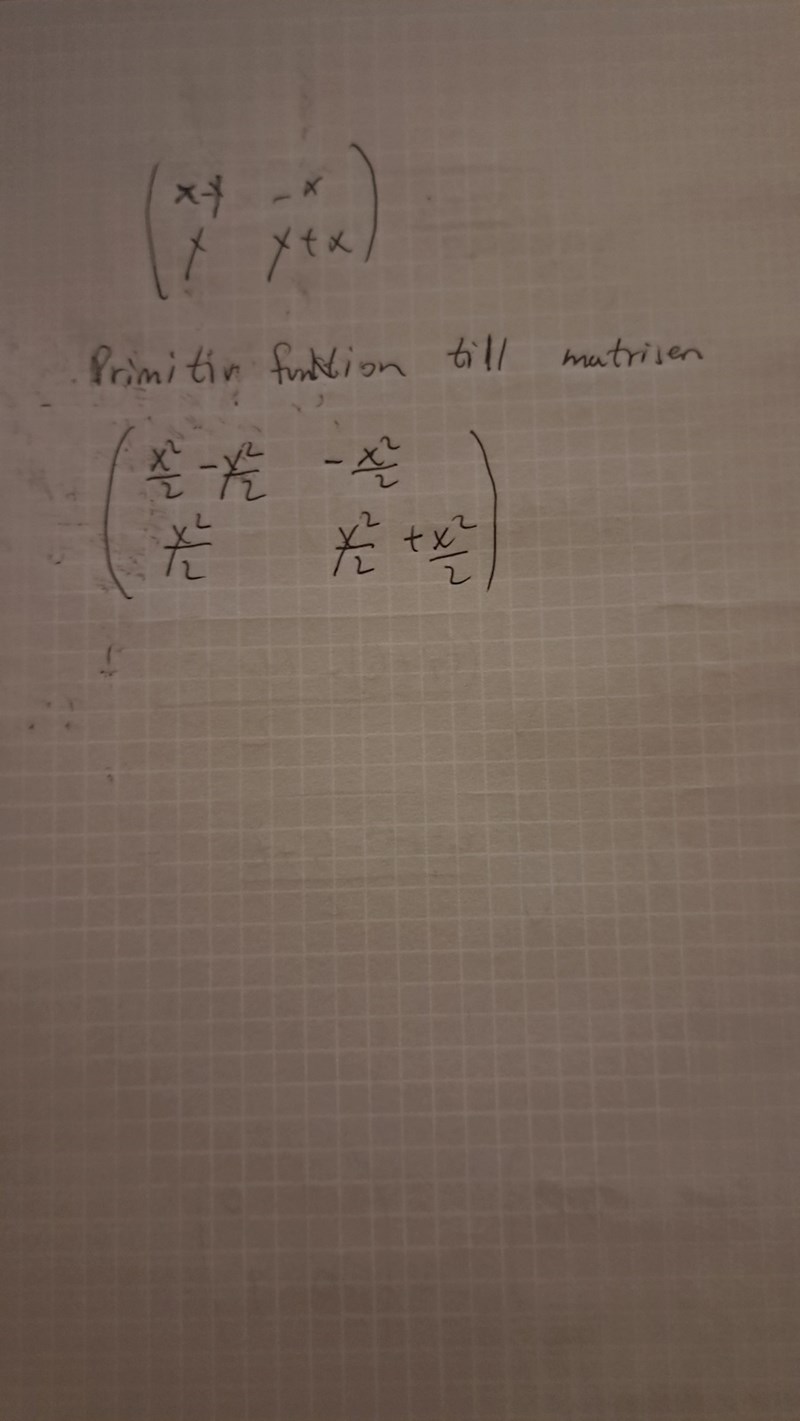 x-y -x
y y+x
Primitiv funktion till matrisen
x²/2 - y²/2 -x²/2
y²/2 y²/2 + x²/2